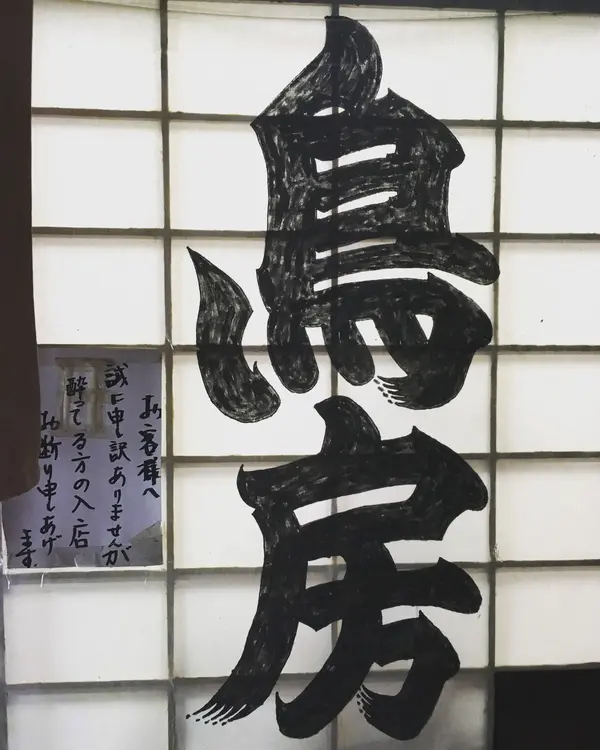 鳥房
お客様へ
誠に申し訳ありませんが
酔ってる方の入店
お断り申しあげ
ます